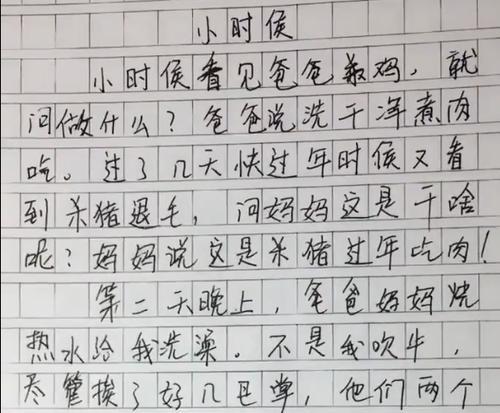 小时侯
小时侯看见爸爸鸡，就
问做什么？爸爸说洗干净煮肉
吃。过了几天快过年时侯又看
到杀猪退毛，问妈妈这是干啥
呢？妈妈说这是杀猪过年吃肉！
第二天晚上，爸爸妈妈烧
热水给我洗澡。不是我吹牛，
尽管挨了好几巴掌，他们两个